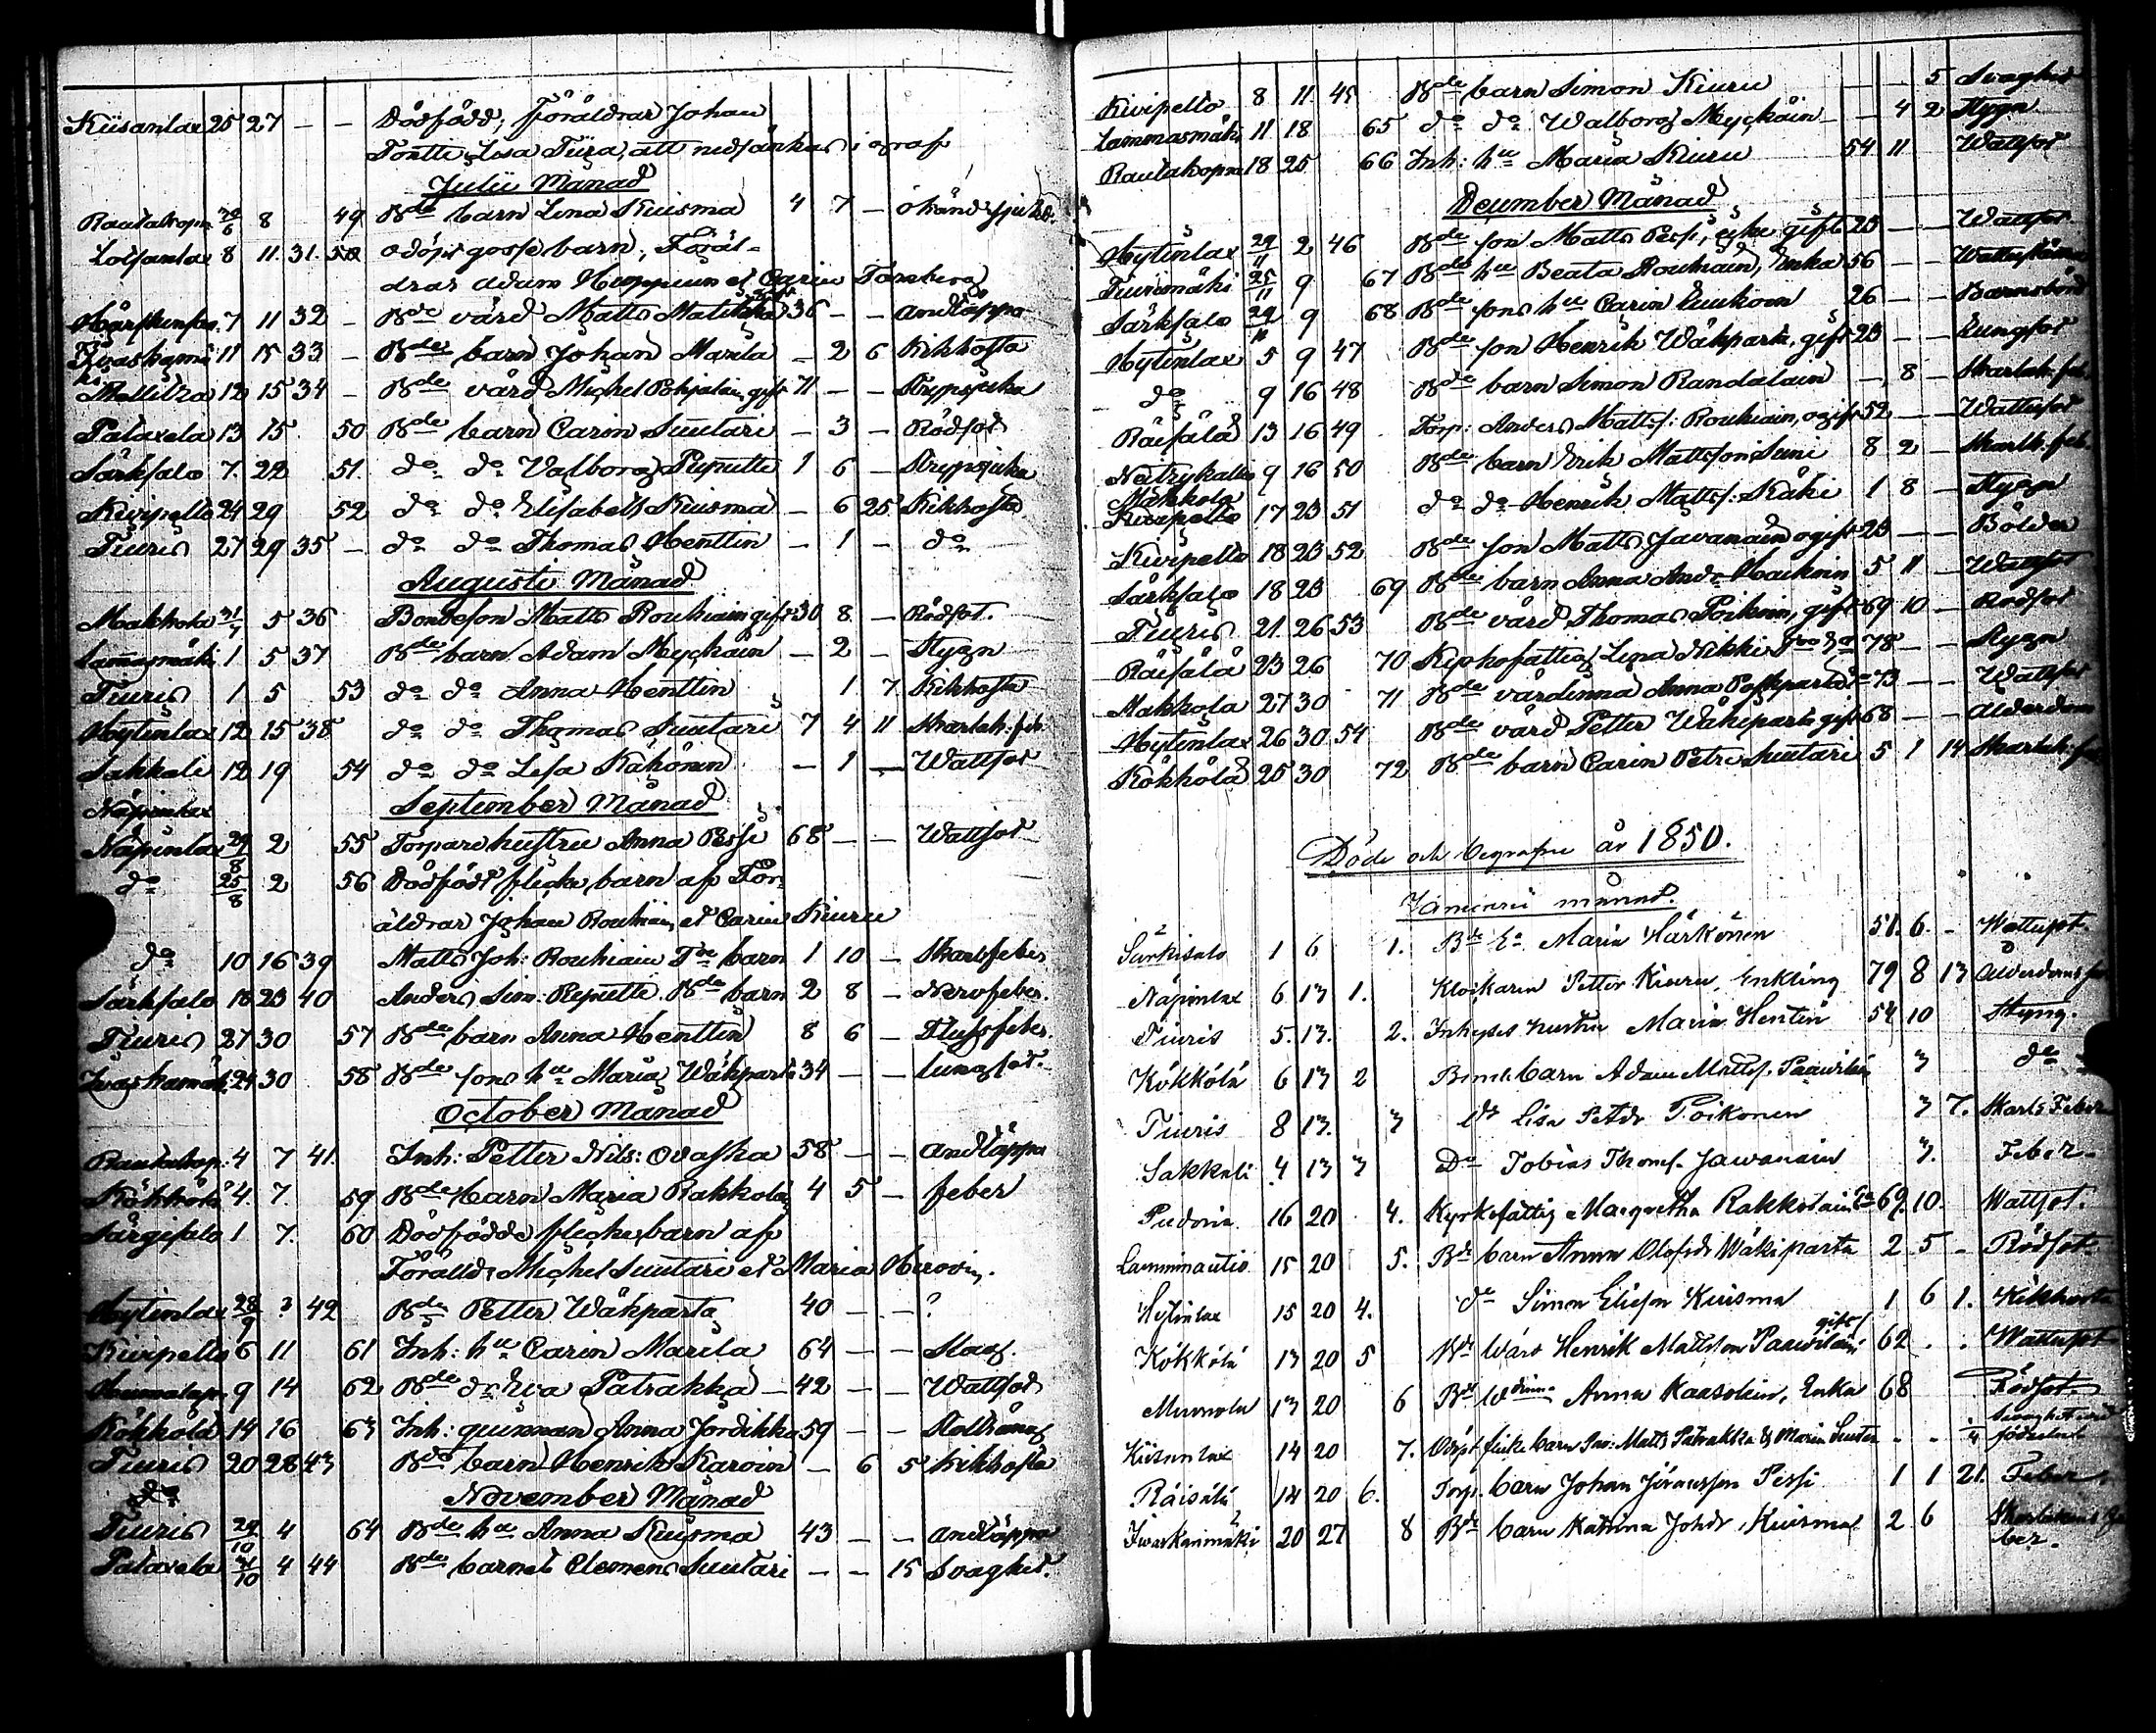 Kiisanlax 25 27 — — Dödfödd; Föräldrar Johan
Tontti, Lisa Tiira, att nedsänkas i graf
Julii Månad
Rautakopm 30/6 8 49 Bde barn Lena Kuisma 4 7 — okänd sjukd.
8 11. 31. 50 odöpt gosse barn, Föräl-
drar Adam Huppuin et Carin
7 11 32 — Bde värd Matts 36 — — Andtäppa
11 15 33 — Bde barn Johan Marila — 2 6 Kikhosta
12 15 34 — Bde värd Michel Pohjalain gift 71 — — Strypsjuka
Pataxela 13 15 50 Bde barn Carin Suutari — 3 — Rödsot
Särksalo 7. 22 51. do do Valborg Reputti 1 6 — Strypsjuka
Kivipelto 24 29 52 do do Elisabeth Kuisma — 6 25 Kikhosta
Tiuris 27 29 35 — do do Thomas Henttin — 1 — do
Augusti Månad
Makkola 31/7 5 36 Bondeson Matts Rouhiain gift 30 8 — Rödsot.
Lammasmäki 1 5 37 Bde barn Adam Myckäin — 2 — Stygn
Tiuris 1. 5 53 do do Anna Henttin 1. 7. Kikhosta
Hytinlax 12 15 38 do do Thomas Suutari 7 4 11 Skarlak: feb
Sakkali 12 19 54 do do Lisa Kähönen — 1 — Wattsot
Näpinlax
September Månad
Näpinlax 29/8 2 55 Torpare hustru Anna Pessi 68 — — Wattsot
do 25/8 2 56 Dödfödt flicke barn af För-
äldrar Johan Rouhiain et Carin Kiuru
do 10 16 39 Matts Joh: Rouhiain barn 1 10 — Skarlfeber
Särksalo 18 23 40 Anders Sim: Reputti Bde barn 2 8 — Nervfeber.
Tiuris 27 30 57 Bde barn Anna Henttin 8 6 —
Ivaskamäk 24 30 58 Bde sons hu Maria Wäkparta 34 — — lungsot.
October Månad
Rautakop. 4 7 41. Inh: Petter Nils: Ovaska 58 — — Andtäppa
Kökkölä 4. 7. 59 Bde barn Maria Rakkolain 4 5 — feber
Särgisalo 1 7. 60 Dödfödde flickebarn af
Förälld: Michel Suutari et Maria
Hytinlax 28/9 ? 42 Bde Petter Wäkparta 40 — — ?
Kivipelto 6 11 61 Inh: hu Carin Marila 64 — —
9 14 62 Bde do Eva Patrakka — 42 — — Wattsot
Kökkölä 14 16 63 Inh: quinnan Anna Jordikka 59 — —
Tiuris 20 28 43 Bde barn Henrik Karvin — 6 5 Kikhosta
do
November Månad
Tiuris 29/10 4 64 Bde hu Anna Kuisma 43 — — Andtäppa
Pataxela 31/10 4 44 Bde barnet Clemens Suutari — — 15 Svaghet.
Kivipelto 8 11. 45 Bde barn Simon Kiuru — — 5 Svaghet
Lammasmäki 11 18 65 do do Walborg Myckäin — 4 2 Stygn
Rautakopm 18 25 66 Inh: hu Maria Kiuru 54 11 Wattsot
December Månad
Hytinlax 29/11 2 46 Bde son Matts Pessi, icke gift 23 — — Wattsot
Tiurinmäki 25/11 9 67 Bde hu Beata Rouhiain, Enka 56 — —
Särksalo 29/11 9 68 Bde sons hu Carin 26 — — Barnsbörd
Hytinlax 5 9 47 Bde son Henrik Wäkparta, gift 23 — — Lungsot
do 9 16 48 Bde barn Simon Randalain — 8 — Skarlak: feb.
Räisälä 13 16 49 Torp: Anders Mattss: Rouhiain, ogift 52 — — Wattusot
9 16 50 Bde barn Erik Mattsson Suni 8 2 — Skarlk: feb.
Makkola
Kivipelto 17 23 51 do do Henrik Mattss: Käki 1 8 — Stygn
Kivipelto 18 23 52 Bde son Matts Javanain ogift 23 — — Bölder
Särksalo 18 23 69 Bde barn Anna Andr 5 11 — Wattsot
Tiuris 21. 26 53 Bde värd Thomas Poikoin, gift 69 10 — Rödsot
Räisälä 23 26 70 Kyrkofattig Lena Nikki 78 — — Stygn
Makkola 27 30 71 Bde värdinna Anna 73 — — Wattsot
Hytinlax 26 30 54 Bde värd Petter Wäkiparta gift 68 — — Ålderdom
Kökkölä 25 30 72 Bde barn Carin Petri Suutari 5 1 14 Skarlak: feb
Döde och begrafne år 1850.
Januarii månad.
Särkisalo 1 6 1. Bde Ea Maria Härkönen 51. 6. - Wattusot.
Näpinlax 6 13 1. Klockaren Petter Kiuru, Enkling 79 8 13 Ålderdoms
Tiuris 5. 13. 2. Inhyses hustru Maria Hentin 54 10 Styng.
Kökkölä 6 13 2 Bonde barn Adam Mattss. 3 do
Tiuris 8 13. 3 do Lisa Petdr Poikonen 3 7. Skarl: Feber
Sakkali 4 13 3 Do Tobias Thomss. Jawanain 3. Feber.
16 20 4. Kyrkefattig Margretha Rakkolain Ea 69. 10. Wattsot.
Lamminautio 15 20 5. Bde barn Anna Olofsdr Wäkiparta 2 5 - Rödsot.
Hytinlax 15 20 4. do Simon Eliesson Kuisma 1 6 1. Kikhosta
gift
Kökkölä 13 20 5 Bde Värd Henrik Mattsson 62 . . Wattusot
13 20 6 Bde Wdinna Anna Kaasolain, Enka 68 Rödsot.
Svaghet vid
Kiisanlax 14 20 7. Odöpt flicke barn Matts Patrakka & Maria - - 1/4 födseln
Räisälä 14 20 6. Torp. barn Johan Göransson Pessi 1 1 21. Feber.
Iwaskanmäki 20 27 8 Bde barn Katrina Johdr. Kuisma 2 6 Skarlakans Fe
ber.